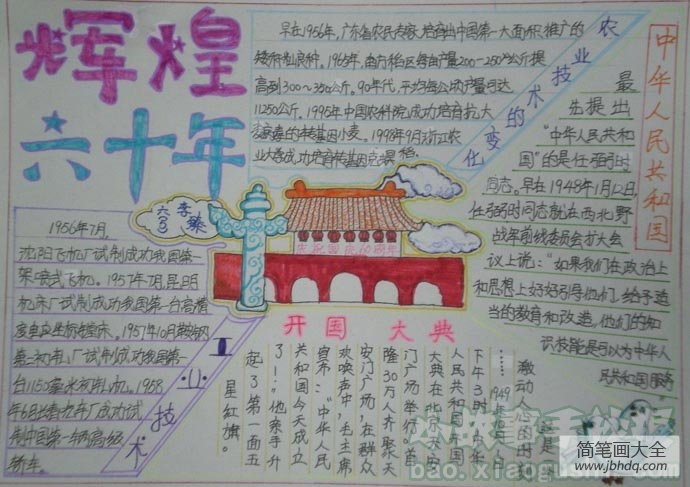 辉煌
六十年
早在1956年,广东省农民专家培育出中国第一大面积推广的
矮秆籼良种。1965年,南方稻区每亩产量200~250公斤提
高到300~350公斤。90年代,平均每公顷产量可达
11250公斤。1995年中国农科院成功培育抗大
的转基因小麦。1998年9月浙江农
业大学成功培育转基因克螟稻。
农业技术的变化
中华人民共和国
最
先提出
“中华人民共和
国”的是任弼时
同志。早在1948年1月12日,
任弼时同志就在西北野
战军前线委员会扩大会
议上说:“如果我们在政治上
和思想上好好引导他们,给予适
当的教育和改造,他们的知
识技能是可以为中华人
民共和国服务
六(3) 李臻
庆祝国庆60周年
1956年7月,
沈阳飞机厂试制成功我国第一
架喷式飞机。1957年7月昆明
机床厂试制成功我国第一台高精
度
1957年10月鞍钢
第二初轧厂试制成功我国第一
台1150毫米初轧机。1958
年6月
厂成功试
制中国第一辆高级
轿车。
工业技术
开国大典
这是一个
激动人心的时刻
1949年10月1日
下午3时,中华
人民共和国开国
大典在北京天安
门广场举行。首
隆30万人齐聚天
安门广场,在群众
欢呼声中,毛主席
宣布:“中华人民
共和国今天成立
了!”他亲手升
起了第一面五
星红旗。
简笔画大全
www.jbhdq.com